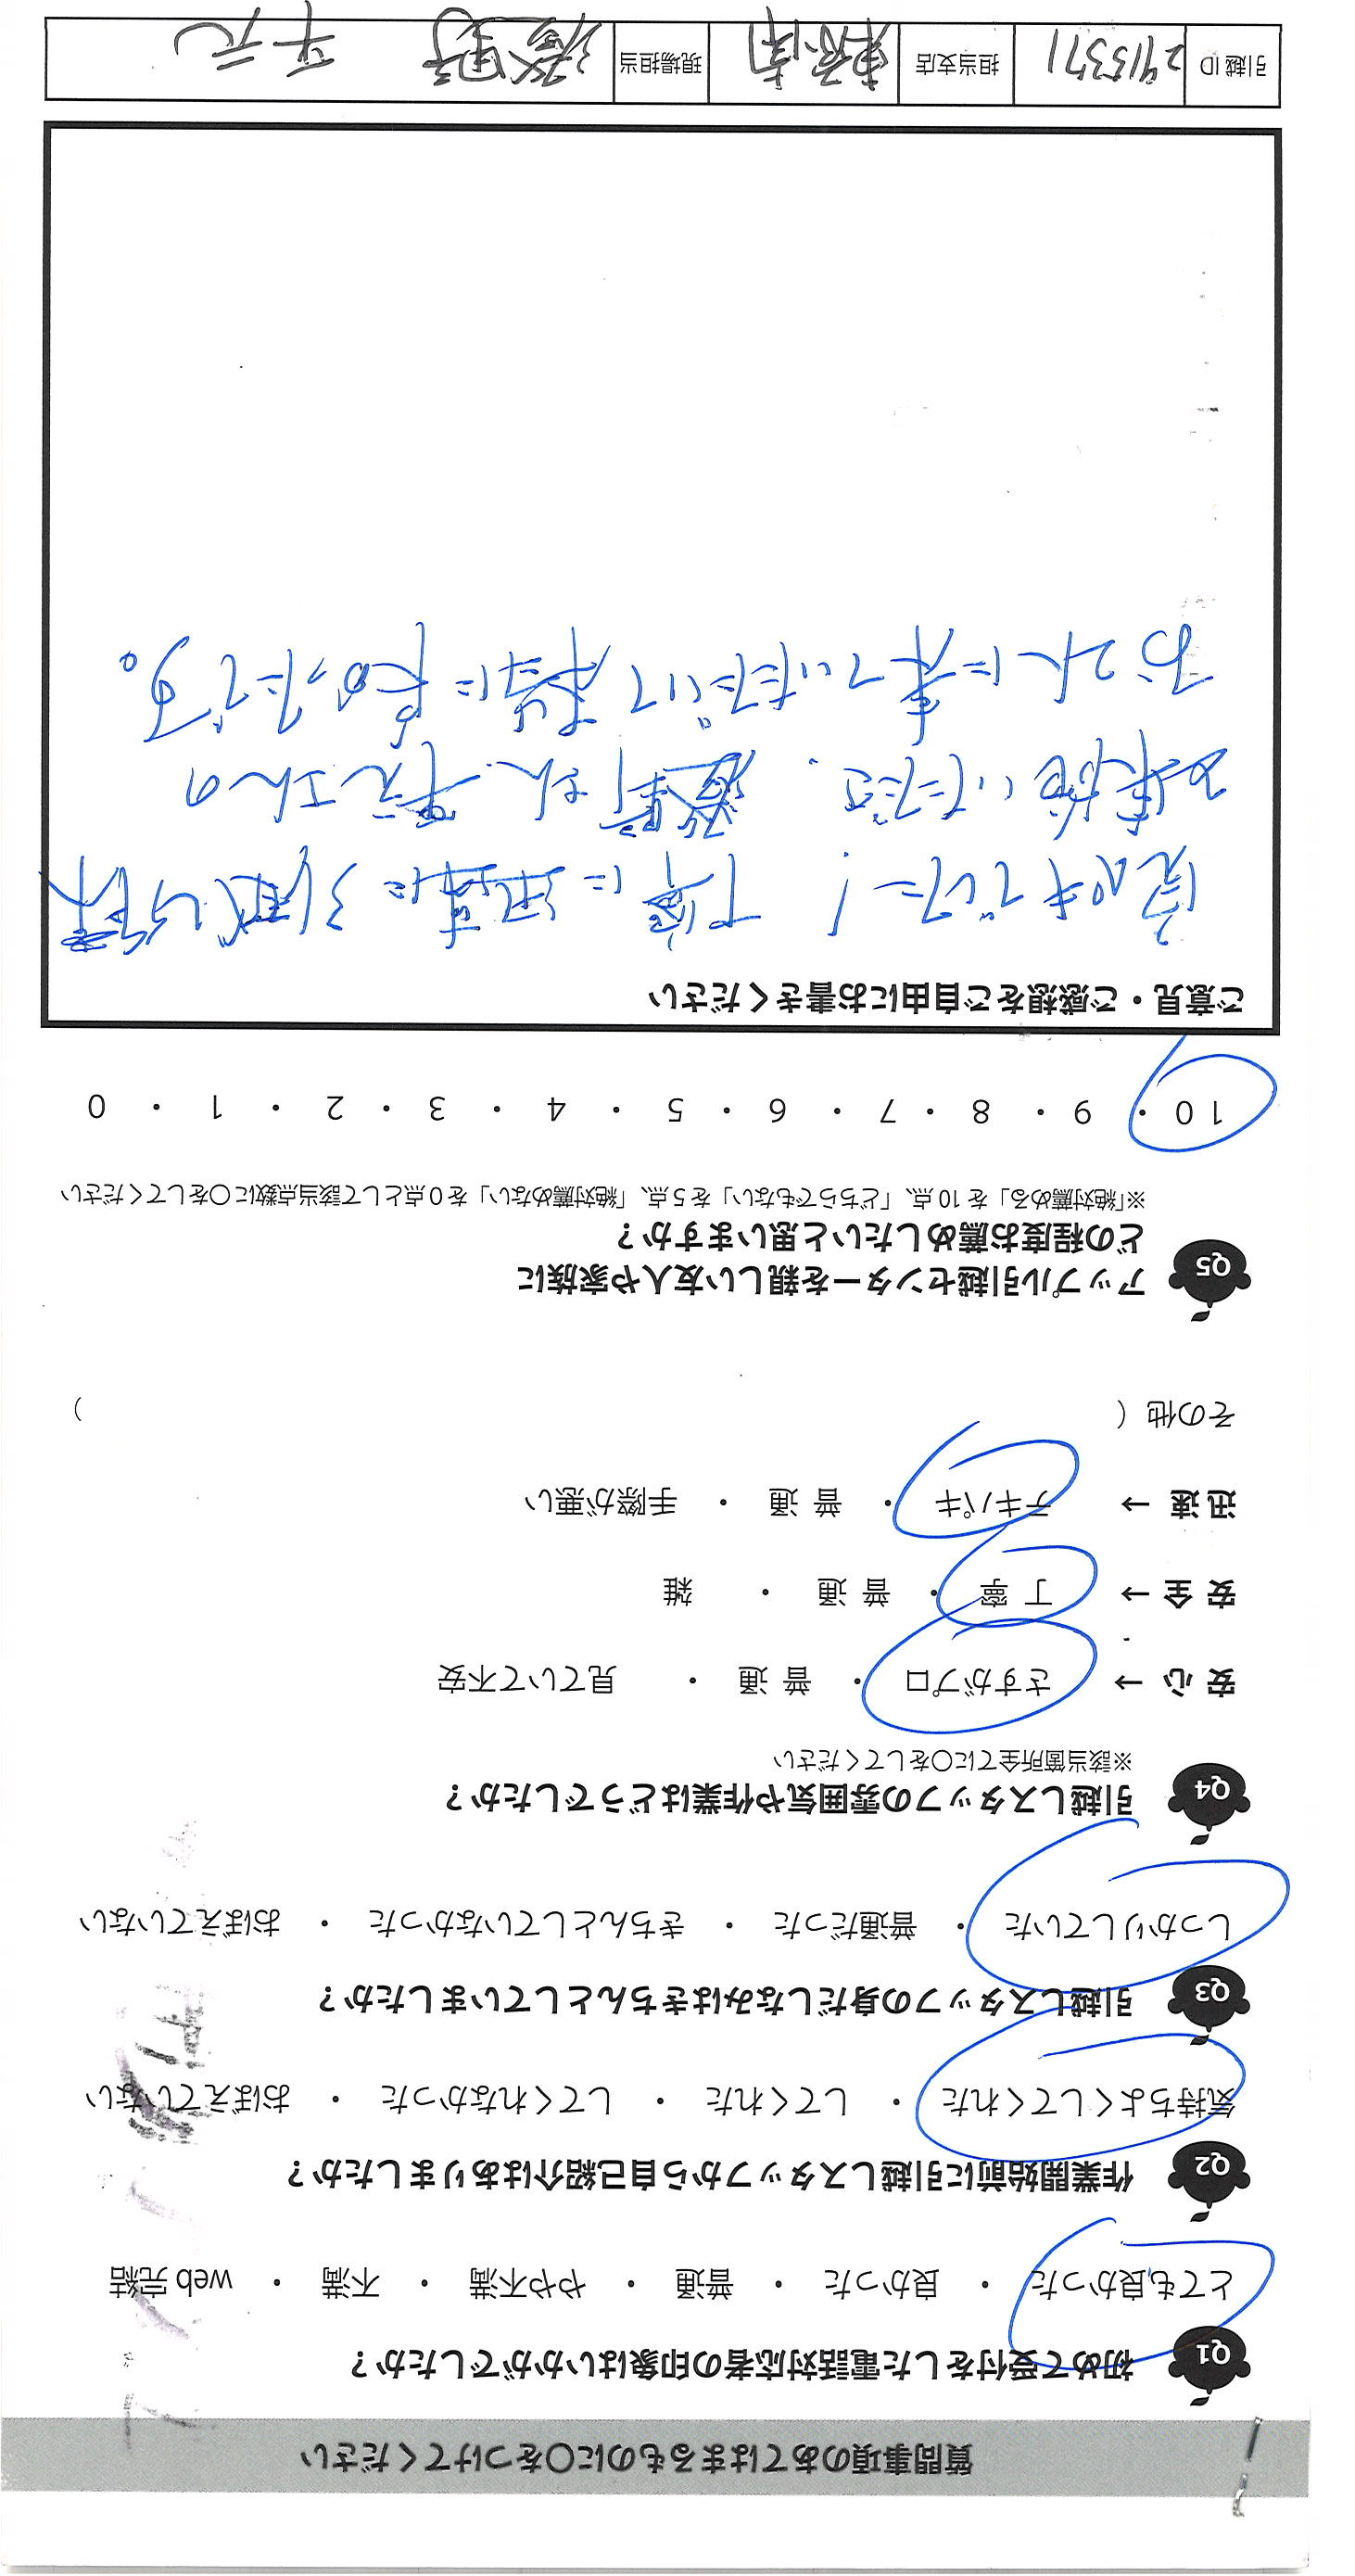 質問事項のあてはまるものに〇をつけてください
Q1 初めて受付をした電話対応者の印象はいかがでしたか？
とても良かった ・ 良かった ・ 普通 ・ やや不満 ・ 不満 ・ web 完結
Q2 作業開始前に引越しスタッフから自己紹介はありましたか？
気持ちよくしてくれた ・ してくれた ・ してくれなかった ・ おぼえていない
Q3 引越しスタッフの身だしなみはきちんとしていましたか？
しっかりしていた ・ 普通だった ・ きちんとしていなかった ・ おぼえていない
Q4 引越しスタッフの雰囲気や作業はどうでしたか？
※該当箇所全てに〇をしてください
安 心 → さすがプロ ・ 普 通 ・ 見ていて不安
安 全 → 丁 寧 ・ 普 通 ・ 雑
迅 速 → テキパキ ・ 普 通 ・ 手際が悪い
その他（ ）
Q5 アップル引越センターを親しい友人や家族に
どの程度お薦めしたいと思いますか？
※「絶対薦める」を 10 点、「どちらでもない」を 5 点、「絶対薦めない」を 0 点として該当点数に〇をしてください
10 ・ 9 ・ 8 ・ 7 ・ 6 ・ 5 ・ 4 ・ 3 ・ 2 ・ 1 ・ 0
ご意見・ご感想をご自由にお書きください
完ぺきでした！ 丁寧に迅速に引越し作業
さんの
お2人に来ていただいて本当に良かったです。
引越 ID 2915371 担当支店 現場担当 平元